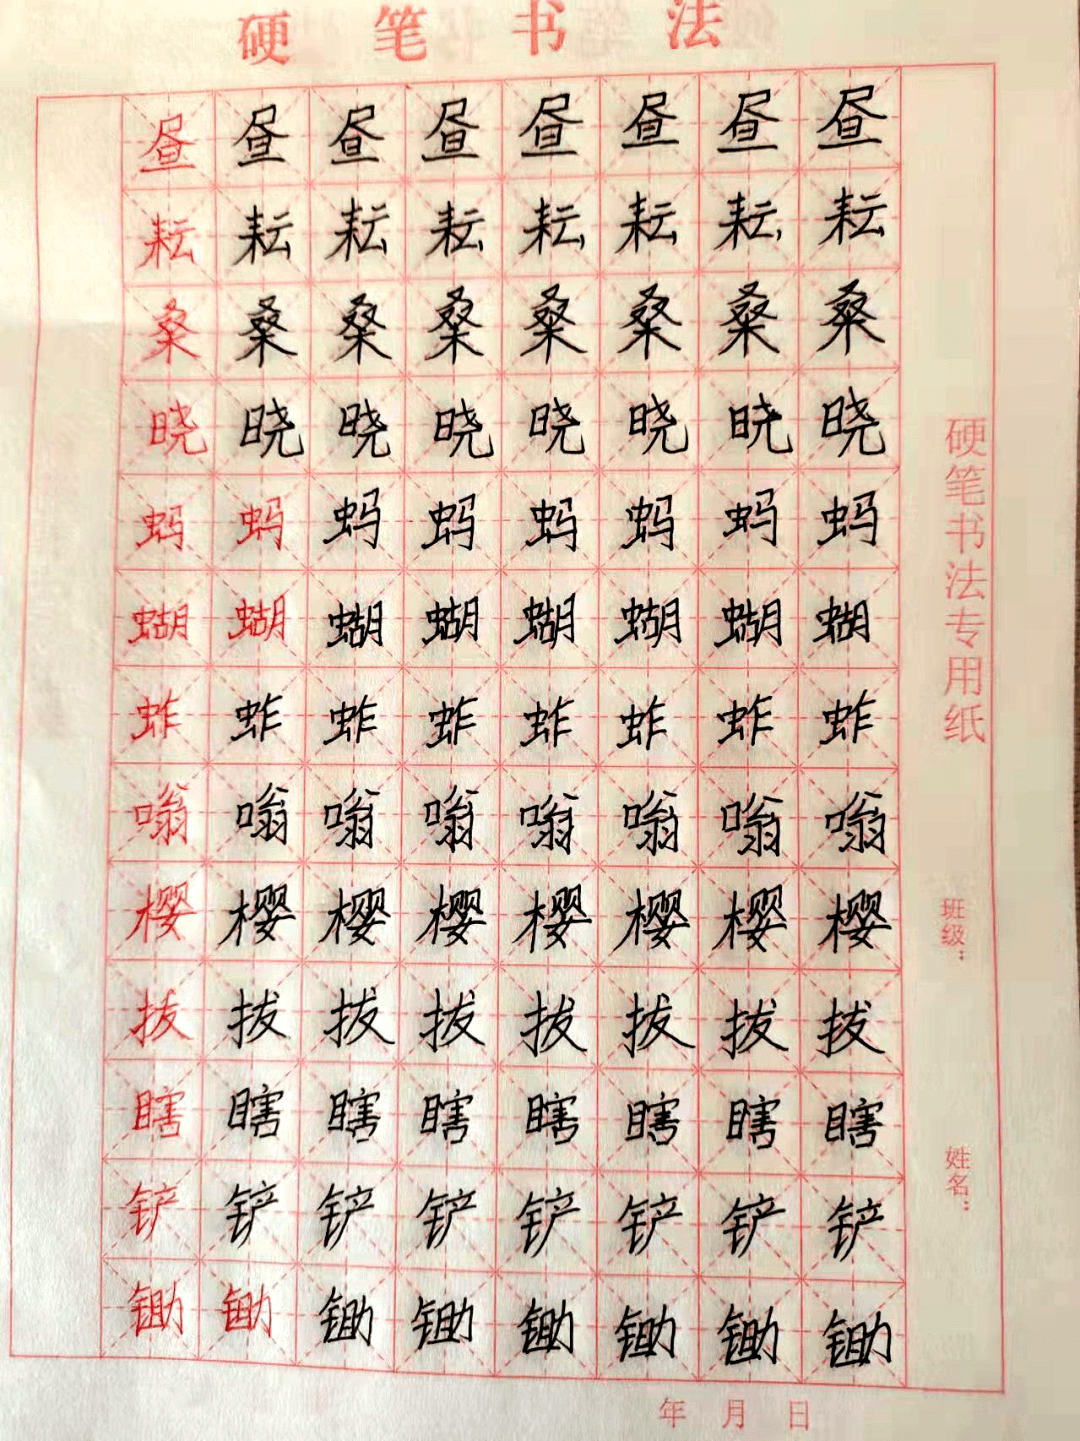 硬笔书法
昼昼昼昼昼昼昼昼
耘耘耘耘耘耘耘耘
桑桑桑桑桑桑桑桑
晓晓晓晓晓晓晓晓
蚂蚂蚂蚂蚂蚂蚂蚂
蝴蝴蝴蝴蝴蝴蝴蝴
蚱蚱蚱蚱蚱蚱蚱蚱
嗡嗡嗡嗡嗡嗡嗡嗡
樱樱樱樱樱樱樱樱
拔拔拔拔拔拔拔拔
瞎瞎瞎瞎瞎瞎瞎瞎
铲铲铲铲铲铲铲铲
锄锄锄锄锄锄锄锄
硬笔书法专用纸
班级：
姓名：
年 月 日